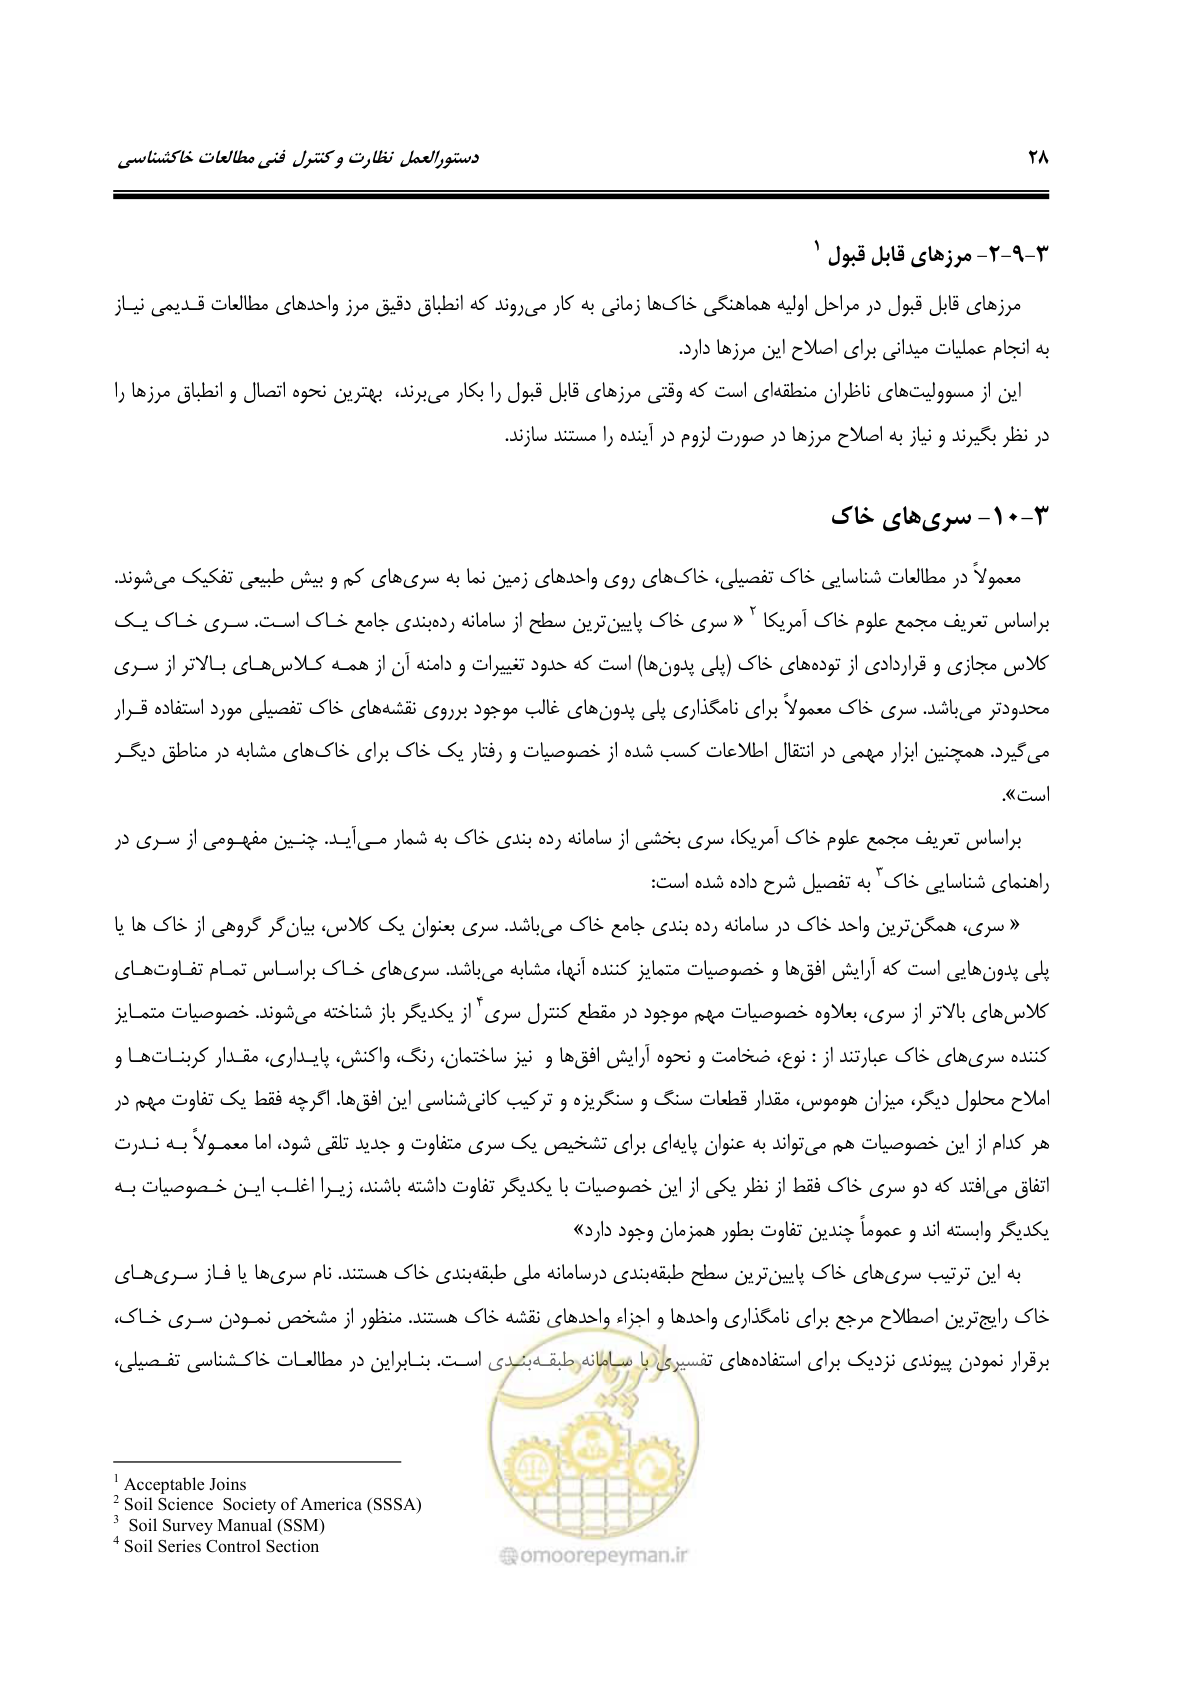 ۲۸ دستورالعمل نظارت و کنترل فنی مطالعات خاکشناسی
۳-۹-۲- مرزهای قابل قبول ۱
مرزهای قابل قبول در مراحل اولیه هماهنگی خاک‌ها زمانی به کار می‌روند که انطباق دقیق مرز واحدهای مطالعات قـدیمی نیـاز
به انجام عملیات میدانی برای اصلاح این مرزها دارد.
این از مسوولیت‌های ناظران منطقه‌ای است که وقتی مرزهای قابل قبول را بکار می‌برند، بهترین نحوه اتصال و انطباق مرزها را
در نظر بگیرند و نیاز به اصلاح مرزها در صورت لزوم در آینده را مستند سازند.
۳-۱۰- سری‌های خاک
معمولاً در مطالعات شناسایی خاک تفصیلی، خاک‌های روی واحدهای زمین نما به سری‌های کم و بیش طبیعی تفکیک می‌شوند.
براساس تعریف مجمع علوم خاک آمریکا ۲ « سری خاک پایین‌ترین سطح از سامانه رده‌بندی جامع خـاک اسـت. سـری خـاک یـک
کلاس مجازی و قراردادی از توده‌های خاک (پلی پدون‌ها) است که حدود تغییرات و دامنه آن از همـه کـلاس‌هـای بـالاتر از سـری
محدودتر می‌باشد. سری خاک معمولاً برای نامگذاری پلی پدون‌های غالب موجود برروی نقشه‌های خاک تفصیلی مورد استفاده قـرار
می‌گیرد. همچنین ابزار مهمی در انتقال اطلاعات کسب شده از خصوصیات و رفتار یک خاک برای خاک‌های مشابه در مناطق دیگـر
است».
براساس تعریف مجمع علوم خاک آمریکا، سری بخشی از سامانه رده بندی خاک به شمار مـی‌آیـد. چنـین مفهـومی از سـری در
راهنمای شناسایی خاک۳ به تفصیل شرح داده شده است:
« سری، همگن‌ترین واحد خاک در سامانه رده بندی جامع خاک می‌باشد. سری بعنوان یک کلاس، بیان‌گر گروهی از خاک ها یا
پلی پدون‌هایی است که آرایش افق‌ها و خصوصیات متمایز کننده آنها، مشابه می‌باشد. سری‌های خـاک براسـاس تمـام تفـاوت‌هـای
کلاس‌های بالاتر از سری، بعلاوه خصوصیات مهم موجود در مقطع کنترل سری۴ از یکدیگر باز شناخته می‌شوند. خصوصیات متمـایز
کننده سری‌های خاک عبارتند از : نوع، ضخامت و نحوه آرایش افق‌ها و نیز ساختمان، رنگ، واکنش، پایـداری، مقـدار کربنـات‌هـا و
املاح محلول دیگر، میزان هوموس، مقدار قطعات سنگ و سنگریزه و ترکیب کانی‌شناسی این افق‌ها. اگرچه فقط یک تفاوت مهم در
هر کدام از این خصوصیات هم می‌تواند به عنوان پایه‌ای برای تشخیص یک سری متفاوت و جدید تلقی شود، اما معمـولاً بـه نـدرت
اتفاق می‌افتد که دو سری خاک فقط از نظر یکی از این خصوصیات با یکدیگر تفاوت داشته باشند، زیـرا اغلـب ایـن خـصوصیات بـه
یکدیگر وابسته اند و عموماً چندین تفاوت بطور همزمان وجود دارد»
به این ترتیب سری‌های خاک پایین‌ترین سطح طبقه‌بندی درسامانه ملی طبقه‌بندی خاک هستند. نام سری‌ها یا فـاز سـری‌هـای
خاک رایج‌ترین اصطلاح مرجع برای نامگذاری واحدها و اجزاء واحدهای نقشه خاک هستند. منظور از مشخص نمـودن سـری خـاک،
برقرار نمودن پیوندی نزدیک برای استفاده‌های تفسیری با سـامانه طبقـه‌بنـدی اسـت. بنـابراین در مطالعـات خاکـشناسی تفـصیلی،
امورپیمان
1 Acceptable Joins
2 Soil Science Society of America (SSSA)
3 Soil Survey Manual (SSM)
4 Soil Series Control Section
@omoorepeyman.ir